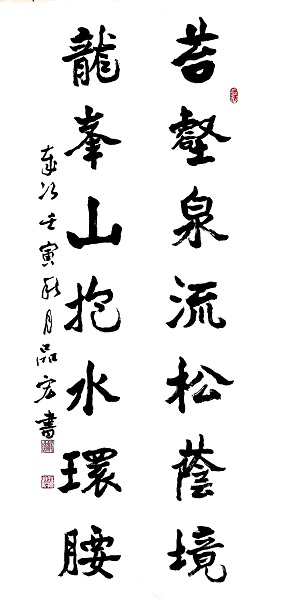 苔壑泉流松蔭境
龍峯山抱水環腰
歲次壬寅秋月品宏書